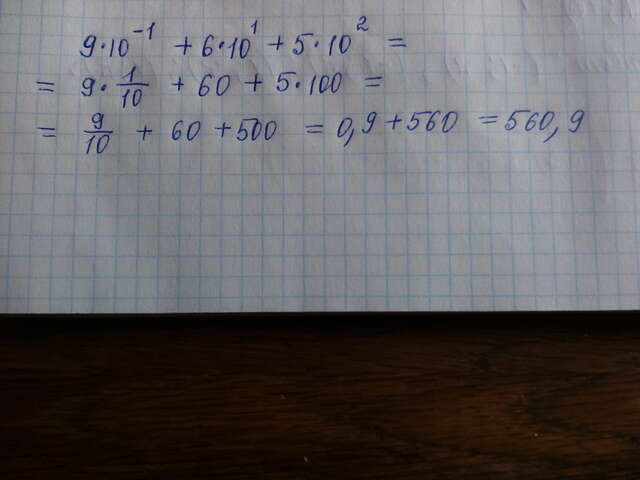 9·10⁻¹ + 6·10¹ + 5·10² =
= 9·1/10 + 60 + 5·100 =
= 9/10 + 60 + 500 = 0,9 + 560 = 560,9